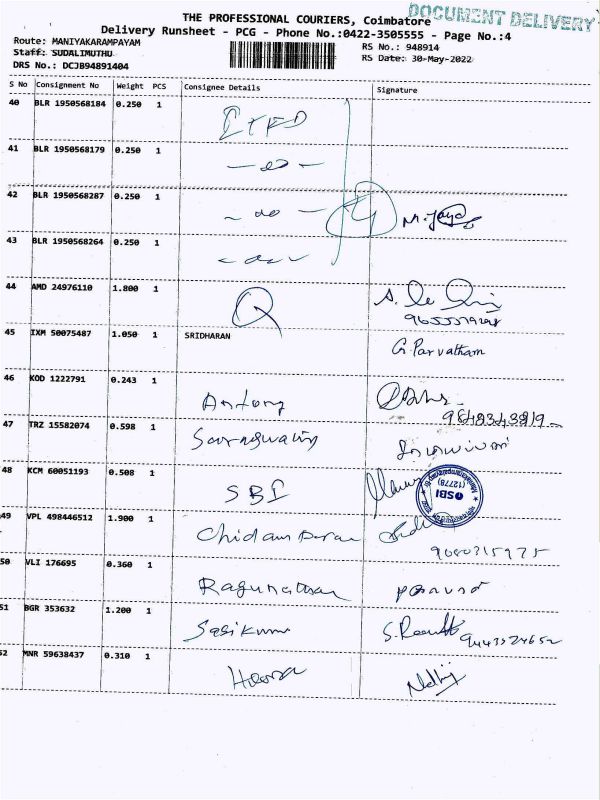 DOCUMENT DELIVERY
THE PROFESSIONAL COURIERS, Coimbatore
Delivery Runsheet - PCG - Phone No.:0422-3505555 - Page No.:4
Route: MANIYAKARAMPAYAM
RS No.: 948914
Staff: SUDALIMUTHU
RS Date: 30-May-2022
DRS No.: DCJB94891404
S No Consignment No Weight PCS Consignee Details Signature
40 BLR 1950568184 0.250 1
41 BLR 1950568179 0.250 1 - do -
42 BLR 1950568287 0.250 1 - do -
43 BLR 1950568264 0.250 1 - do -
44 AMD 24976110 1.800 1
45 IXM 50075487 1.050 1 SRIDHARAN G. Parvatham
46 KOD 1222791 0.243 1 Antony
47 TRZ 15582074 0.598 1
48 KCM 60051193 0.508 1 SBI
SBI
(12778)
49 VPL 498446512 1.900 1
50 VLI 176695 0.360 1 Ragunathan
51 BGR 353632 1.200 1 Sasikumar
52 MNR 59638437 0.310 1